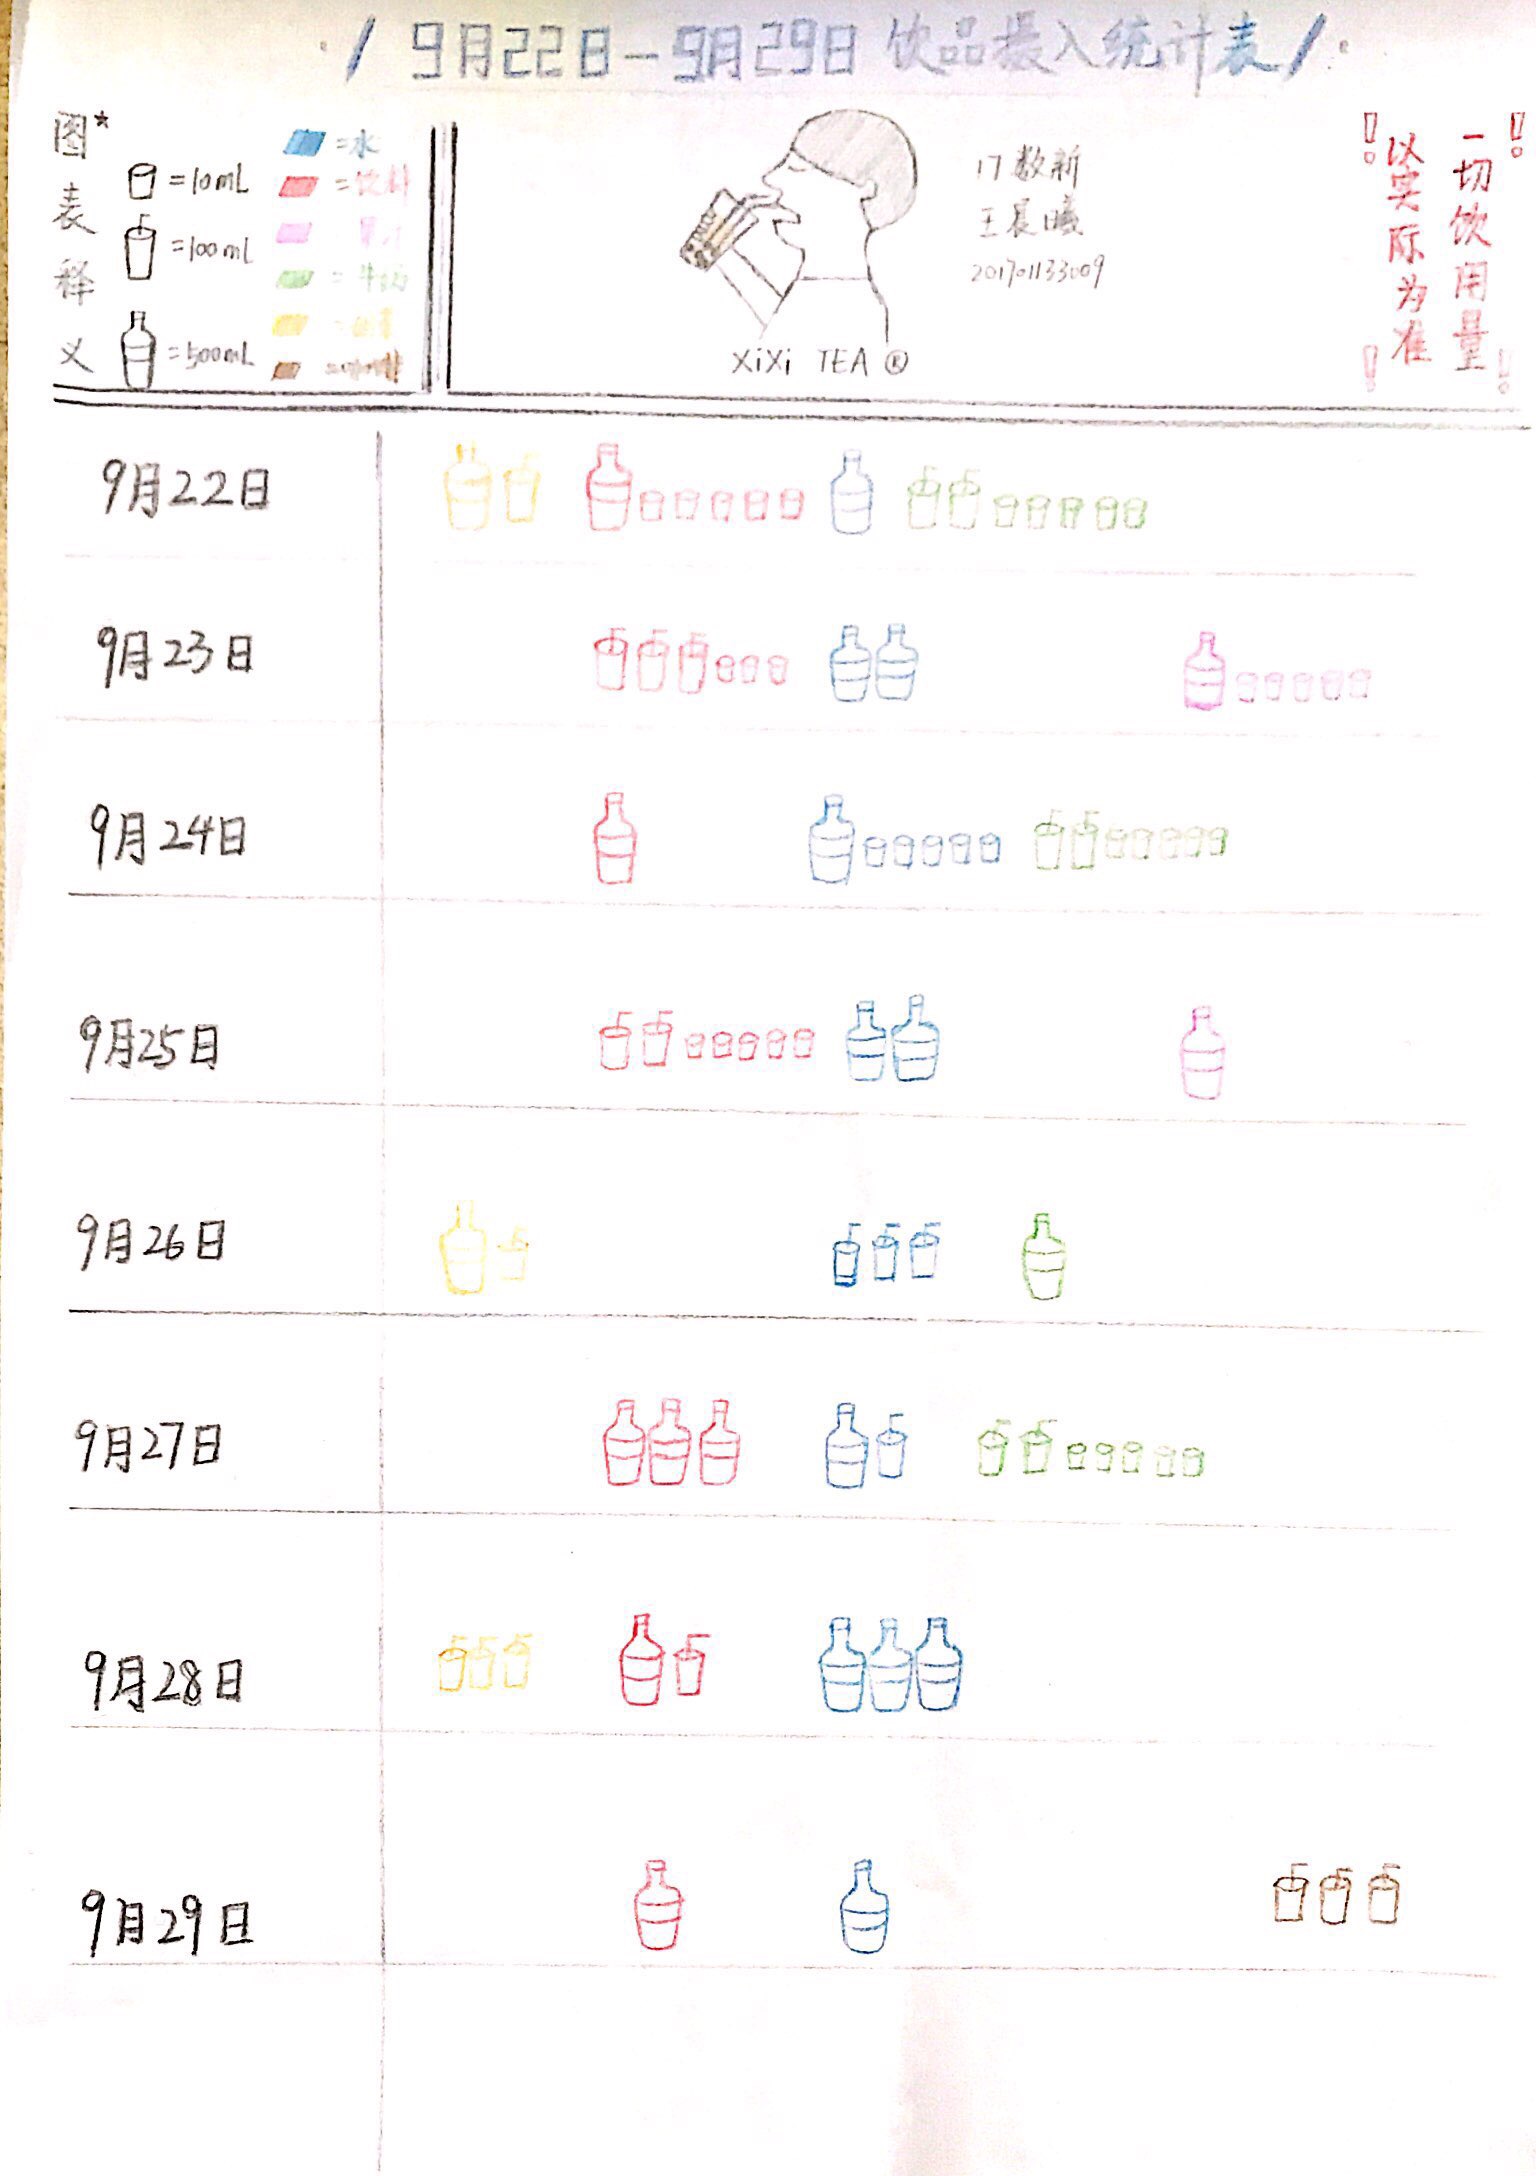 9月22日-9月29日 饮品摄入统计表
图*表释义
=10mL
=100mL
=500mL
=水
=饮料
=牛奶
17数新
王晨曦
201701133009
XiXi TEA ®
一切饮用量
以实际为准
9月22日
9月23日
9月24日
9月25日
9月26日
9月27日
9月28日
9月29日